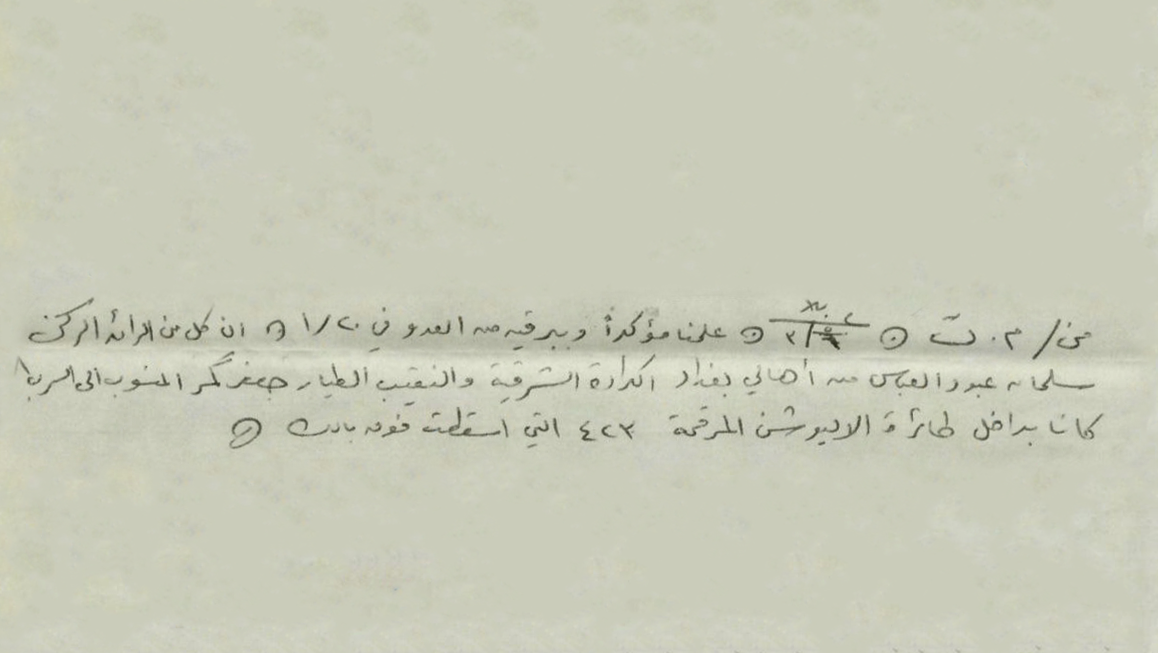 من / م . ت ⊙ ٣/ ⊙ علمنا مؤكداً وببرقية من العدو في ١/٢٠ ⊙ ان كل من الرائد الركن
سلمان عبود العباس من أهالي بغداد الكرادة الشرقية والنقيب الطيار جعفر المنسوب الى السرب ١
كانا بداخل طائرة الاليوشن المرقمة ٤٢٣ التي اسقطت فوق ⊙